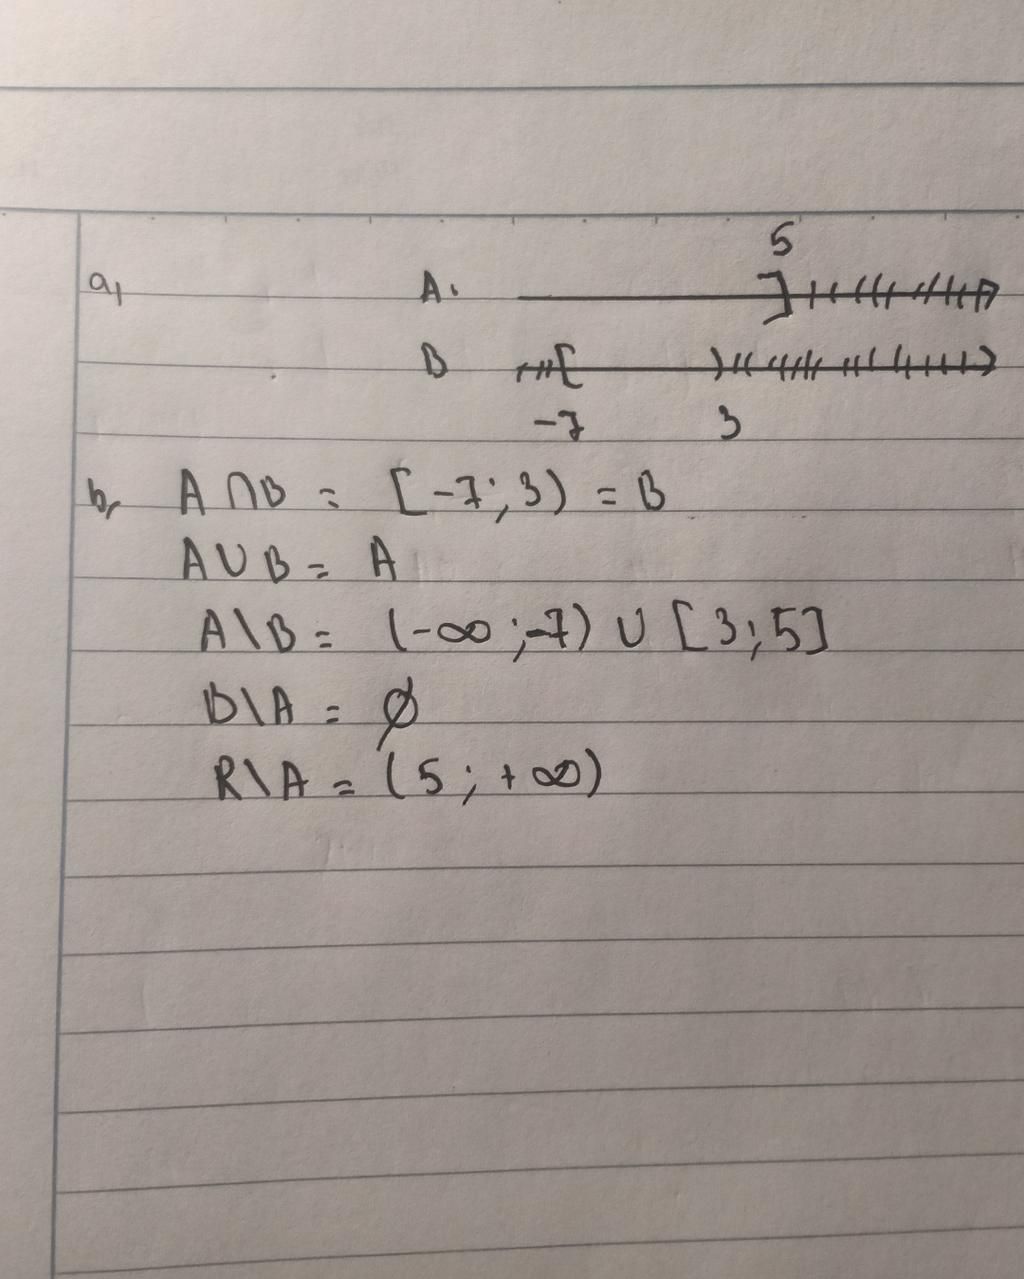 5
a, A.
]
B [ )
-7 3
b, A ∩ B = [-7; 3) = B
A ∪ B = A
A \ B = (-∞; -7) ∪ [3; 5]
B \ A = ∅
R \ A = (5; +∞)